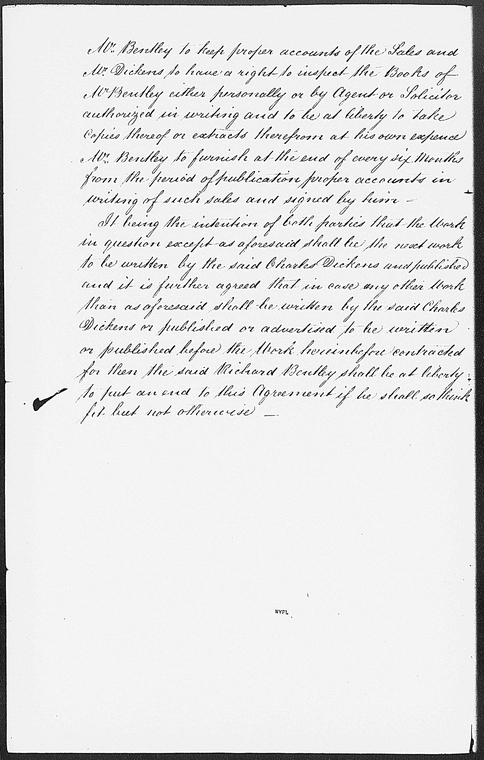 Mr. Bentley to keep proper accounts of the Sales and
Mr. Dickens to have a right to inspect the Books of
Mr Bentley either personally or by Agent or Solicitor
authorized in writing and to be at liberty to take
Copies thereof or extracts therefrom at his own expence
Mr. Bentley to furnish at the end of every six Months
from the period of publication proper accounts in
writing of such sales and signed by him –
It being the intention of both parties that the Work
in question except as aforesaid shall be the next work
to be written by the said Charles Dickens and published
and it is further agreed that in case any other Work
than as aforesaid shall be written by the said Charles
Dickens or published or advertised to be written
or published before the Work hereinbefore contracted
for then the said Richard Bentley shall be at liberty
to put an end to this Agreement if he shall so think
fit but not otherwise —
NYPL